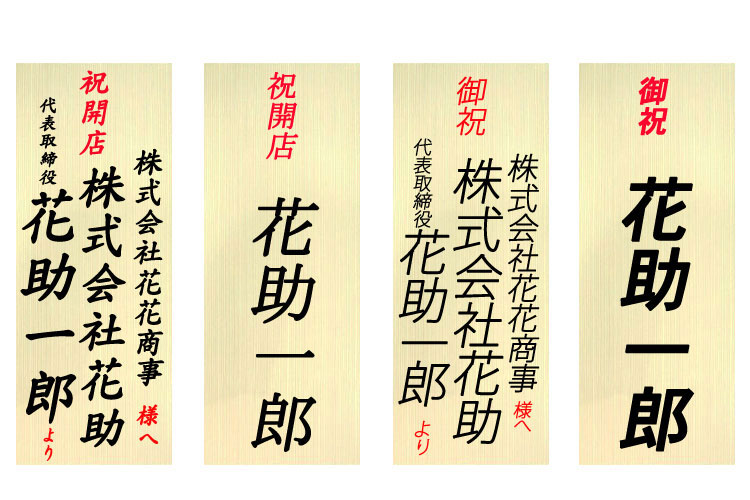 祝開店
株式会社花花商事 様へ
株式会社花助
代表取締役 花助一郎 より
祝開店
花助一郎
御祝
株式会社花花商事 様へ
株式会社花助
代表取締役 花助一郎 より
御祝
花助一郎